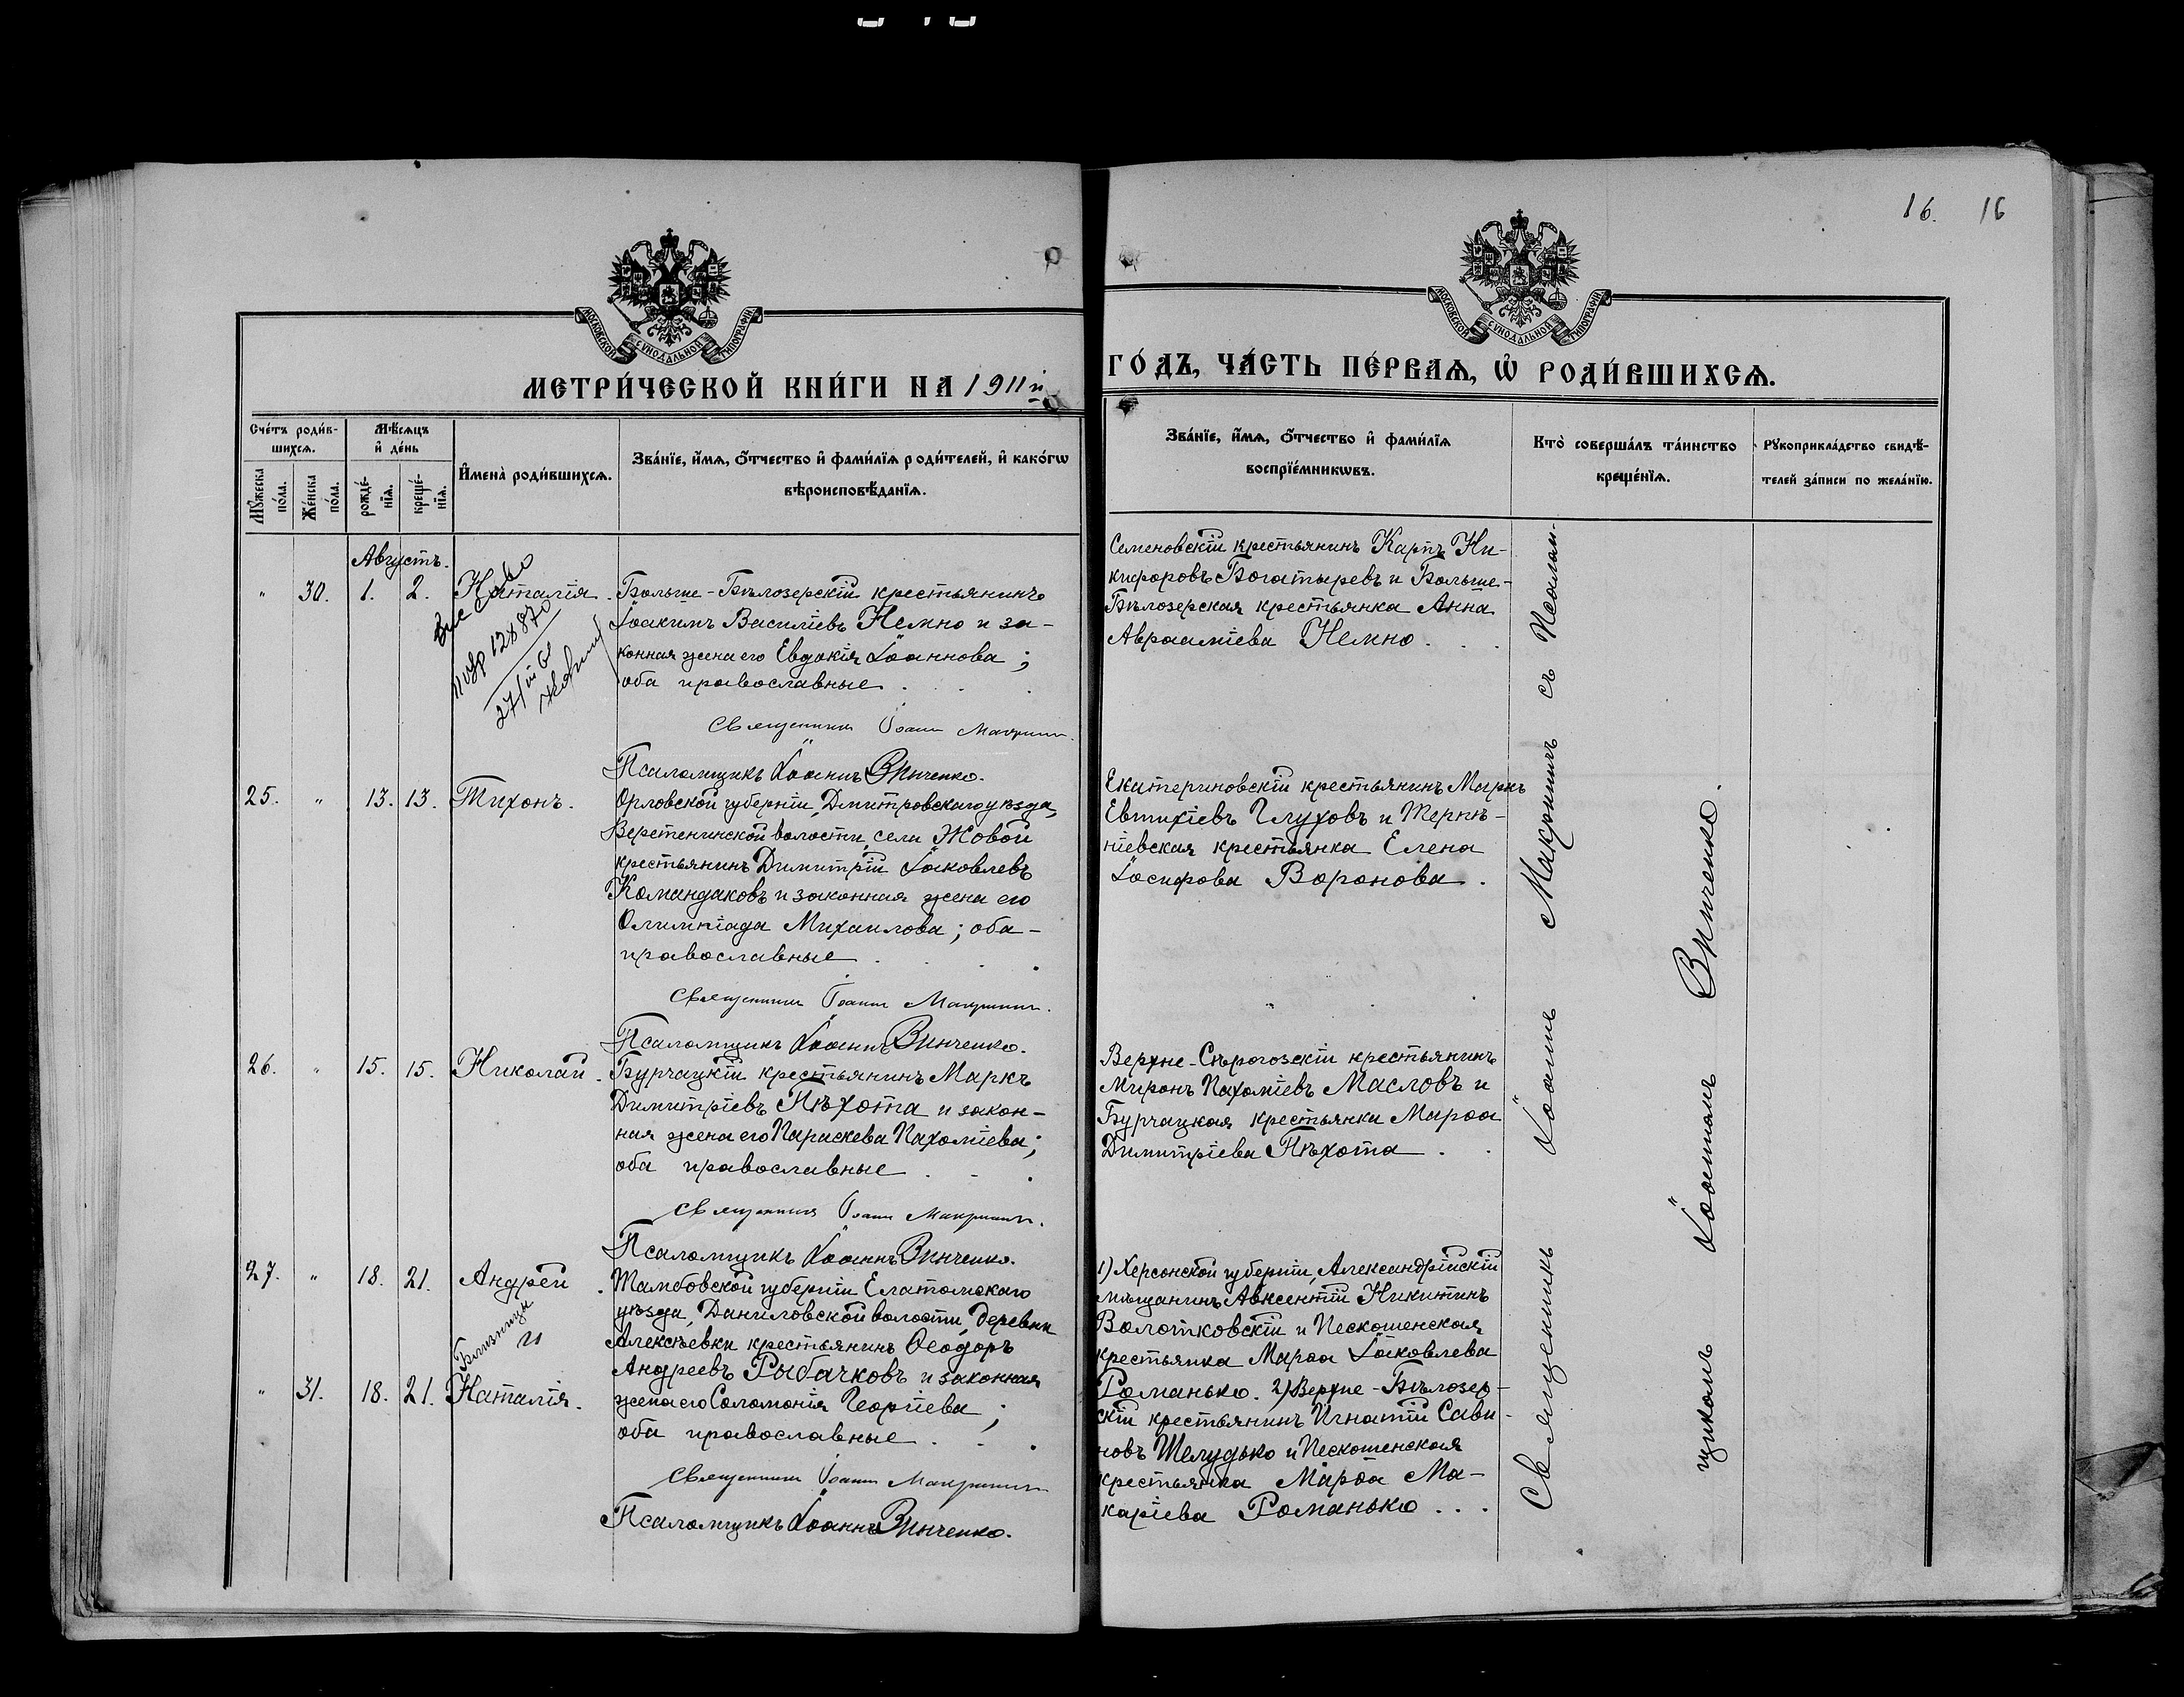 16. 16
МОСКОВСКОЙ СѴНОДАЛЬНОЙ ТИПОГРАФІИ
МОСКОВСКОЙ СѴНОДАЛЬНОЙ ТИПОГРАФІИ
МЕТРИ́ЧЕСКОЙ КНИ́ГИ НА 1911й
ГО́ДЪ, ЧА́СТЬ ПЕ́РВАѦ, Ѡ҆ РОДИ́ВШИХСѦ.
Сче́тъ роди́в-
шихсѧ.
Мѣ́сѧцъ
и҆ де́нь
Мꙋ́жеска по́ла.
Же́нска по́ла.
рожде́-
нїѧ.
креще́-
нїѧ.
И҆мена̀ роди́вшихсѧ.
Зва́нїе, и҆́мѧ, ѻ҆́тчество и҆ фами́лїѧ роди́телей, и҆ како́гѡ
вѣроисповѣ́данїѧ.
Зва́нїе, и҆́мѧ, ѻ҆́тчество и҆ фами́лїѧ
воспрїе́мникѡвъ.
Кто̀ соверша́лъ та́инство
креще́нїѧ.
Рꙋкоприкла́дство свидѣ́-
телей за́писи по жела́нїю.
Августъ.
" 30. 1. 2. Наталія.
Больше-Бѣлозерскій крестьянинъ
Іоакимъ Василіевъ Немно и за-
конная жена его Евдокія Іоаннова;
оба православные . . .
Священникъ Іоаннъ Макринъ.
Псаломщикъ Іоаннъ Винченко.
Семеновскій крестьянинъ Карпъ Ни-
кифоровъ Богатыревъ и Больше-
Бѣлозерская крестьянка Анна
Авраамїева Немно . . .
25. " 13. 13. Тихонъ.
Орловской губерніи, Дмитровскаго уѣзда,
Веретенинской волости, села Жовой
крестьянинъ Димитрій Іаковлевъ
Командаковъ и законная жена его
Олимпіада Михаилова; оба-
православные . . .
Священникъ Іоаннъ Макринъ.
Псаломщикъ Іоаннъ Винченко.
Екатериновскій крестьянинъ Маркъ
Евтихіевъ Глуховъ и Терпѣ-
ніевская крестьянка Елена
Іосифова Воронова.
26. " 15. 15. Николай.
Бурчацкій крестьянинъ Маркъ
Димитріевъ Пѣхота и закон-
ная жена его Параскева Пахоміева;
оба православные . . .
Священникъ Іоаннъ Макринъ.
Псаломщикъ Іоаннъ Винченко.
Верхне-Сѣрогозскій крестьянинъ
Миронъ Пахоміевъ Масловъ и
Бурчацкая крестьянка Марѳа
Димитріева Пѣхота . .
27. " 18. 21. Андрей.
Близнецы
и
" 31. 18. 21. Наталія.
Тамбовской губерніи Елатомскаго
уѣзда, Даниловской волости, деревни
Алексѣевки крестьянинъ Ѳеодоръ
Андреевъ Рыбачковъ и законная
жена его Соломонія Георгіева;
оба православные . . .
Священникъ Іоаннъ Макринъ
Псаломщикъ Іоаннъ Винченко.
1) Херсонской губерніи, Александрійскій
мѣщанинъ Авксентій Никитинъ
Волотковскій и Пескошенская
крестьянка Марѳа Іаковлева
Романько. 2) Верхне-Бѣлозер-
скій крестьянинъ Игнатій Сави-
новъ Шелудько и Пескошенская
крестьянка Марѳа Ма-
каріева Романько . . .
Священникъ Іоаннъ Макринъ съ Псалом-
щикомъ Іоанномъ Винченко.